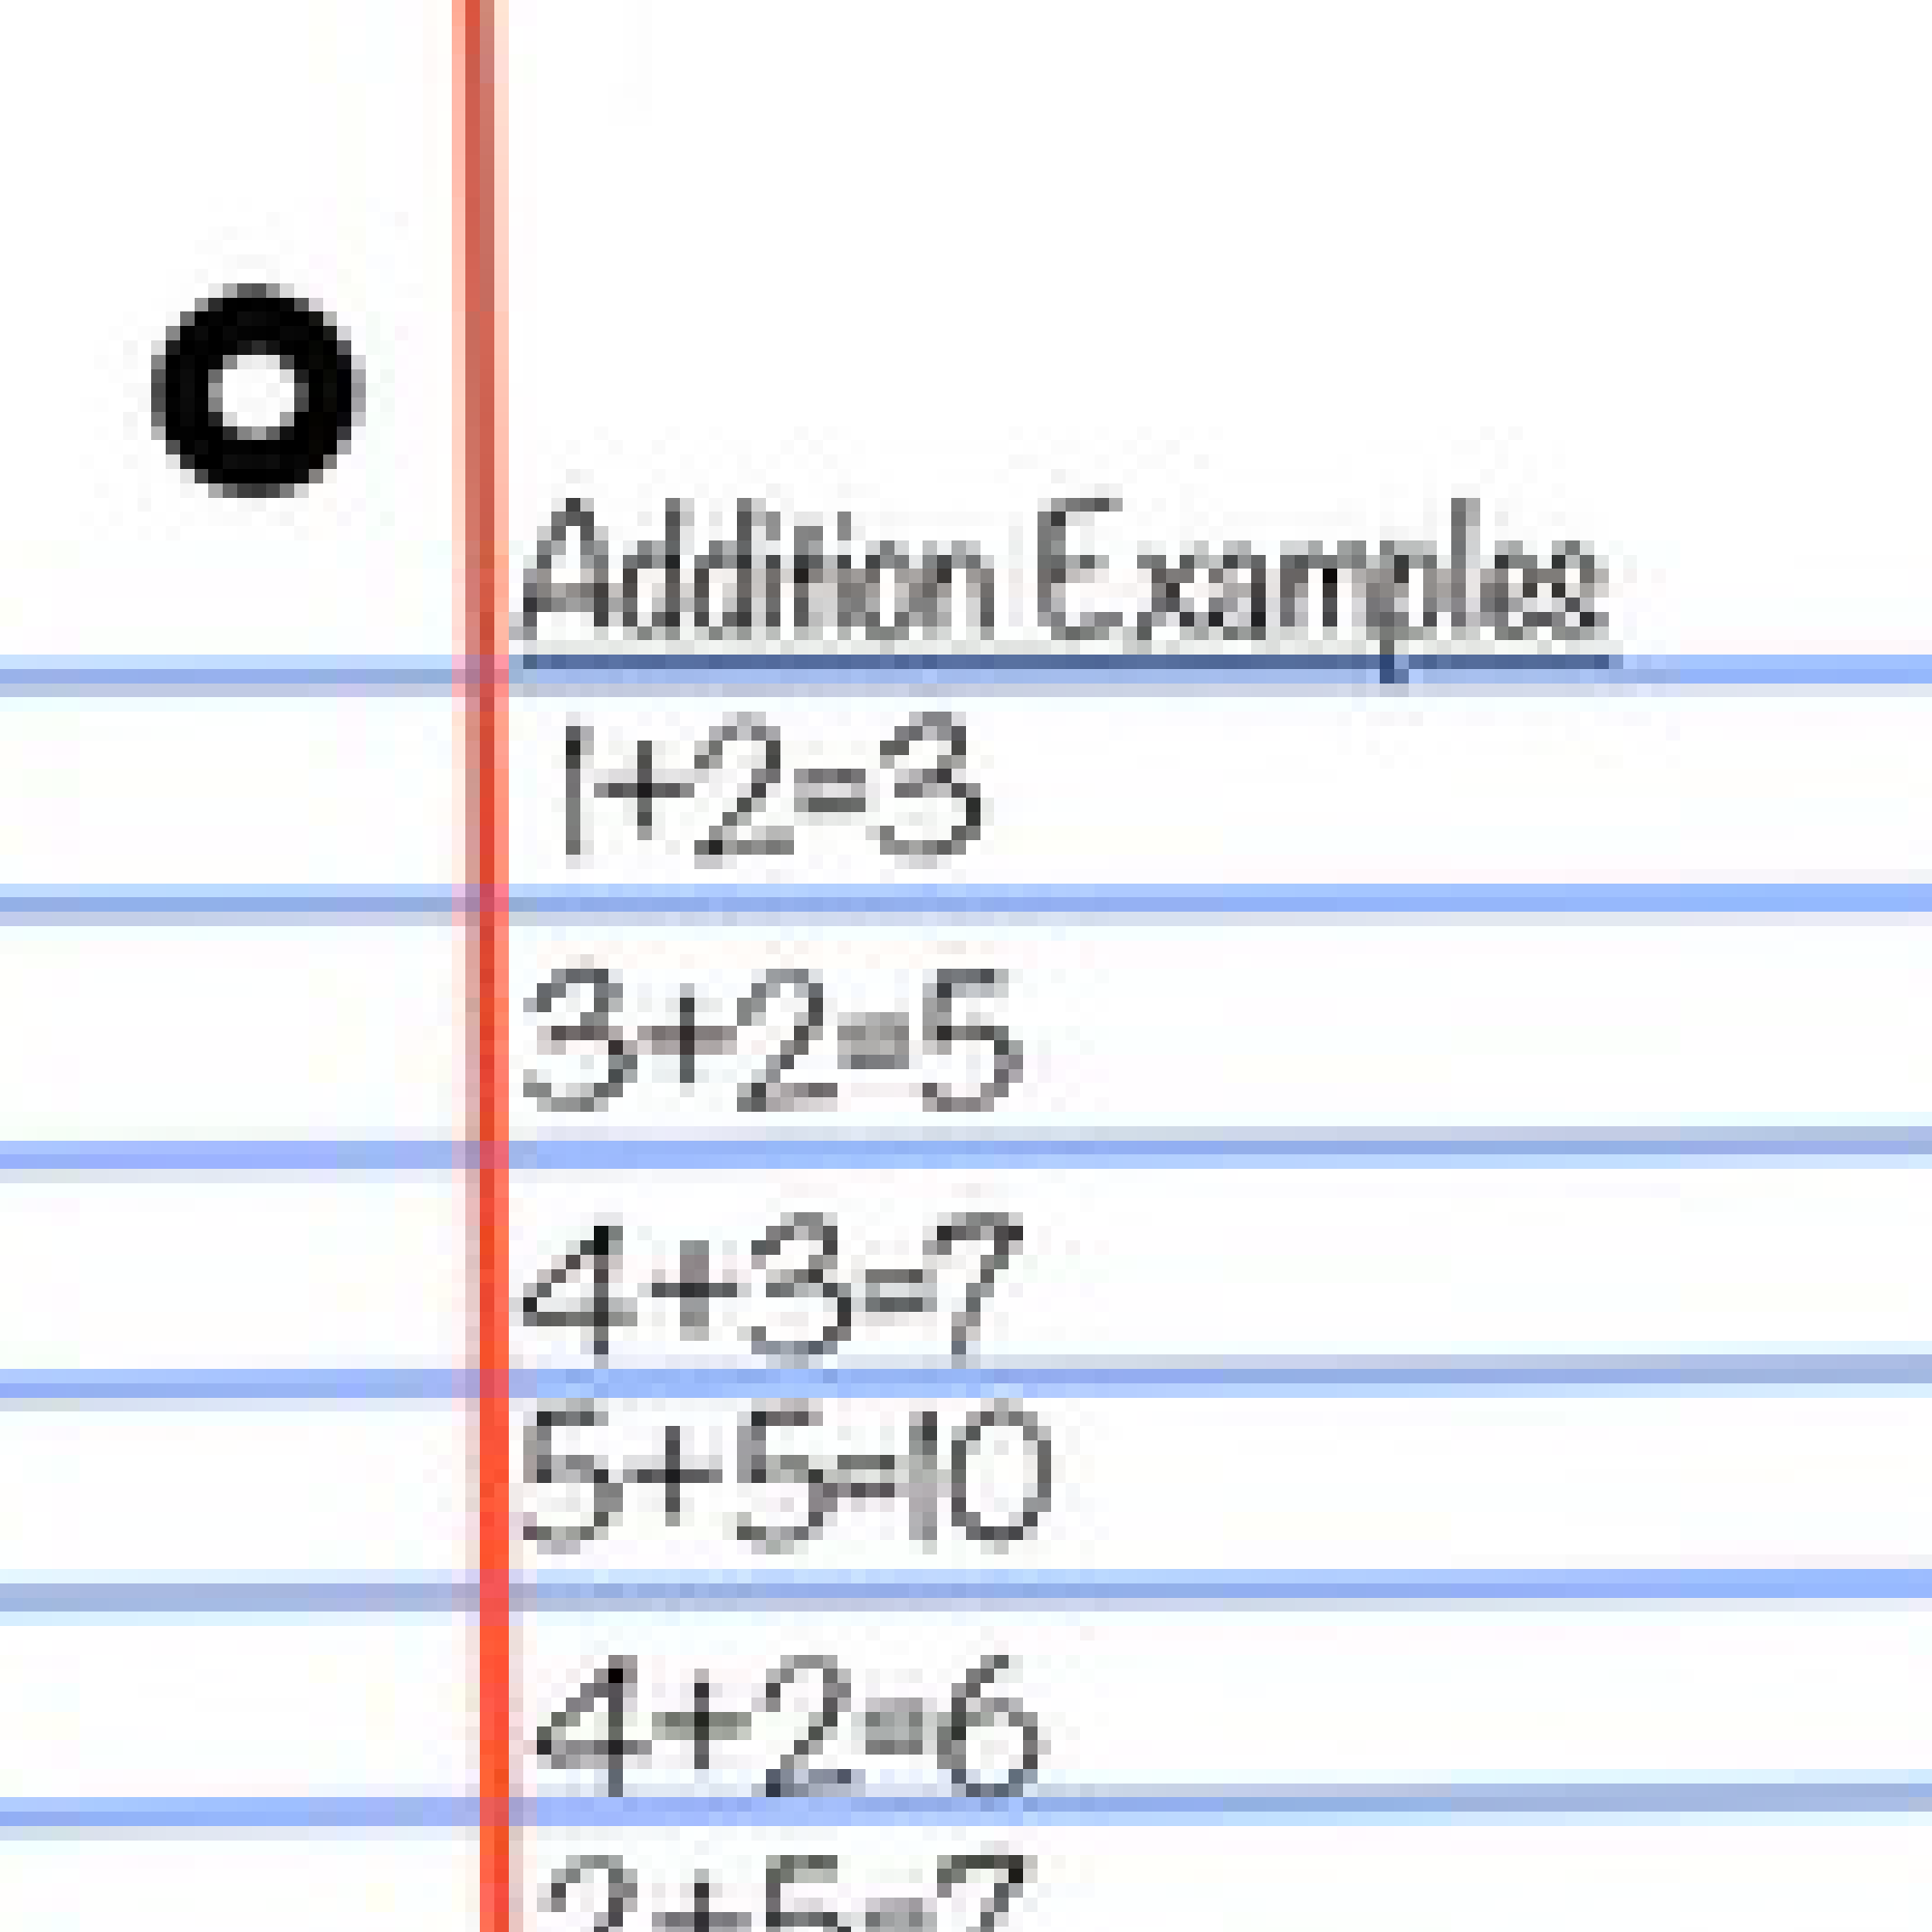 Addition Examples
1+2=3
3+2=5
4+3=7
5+5=10
4+2=6
2+5=7